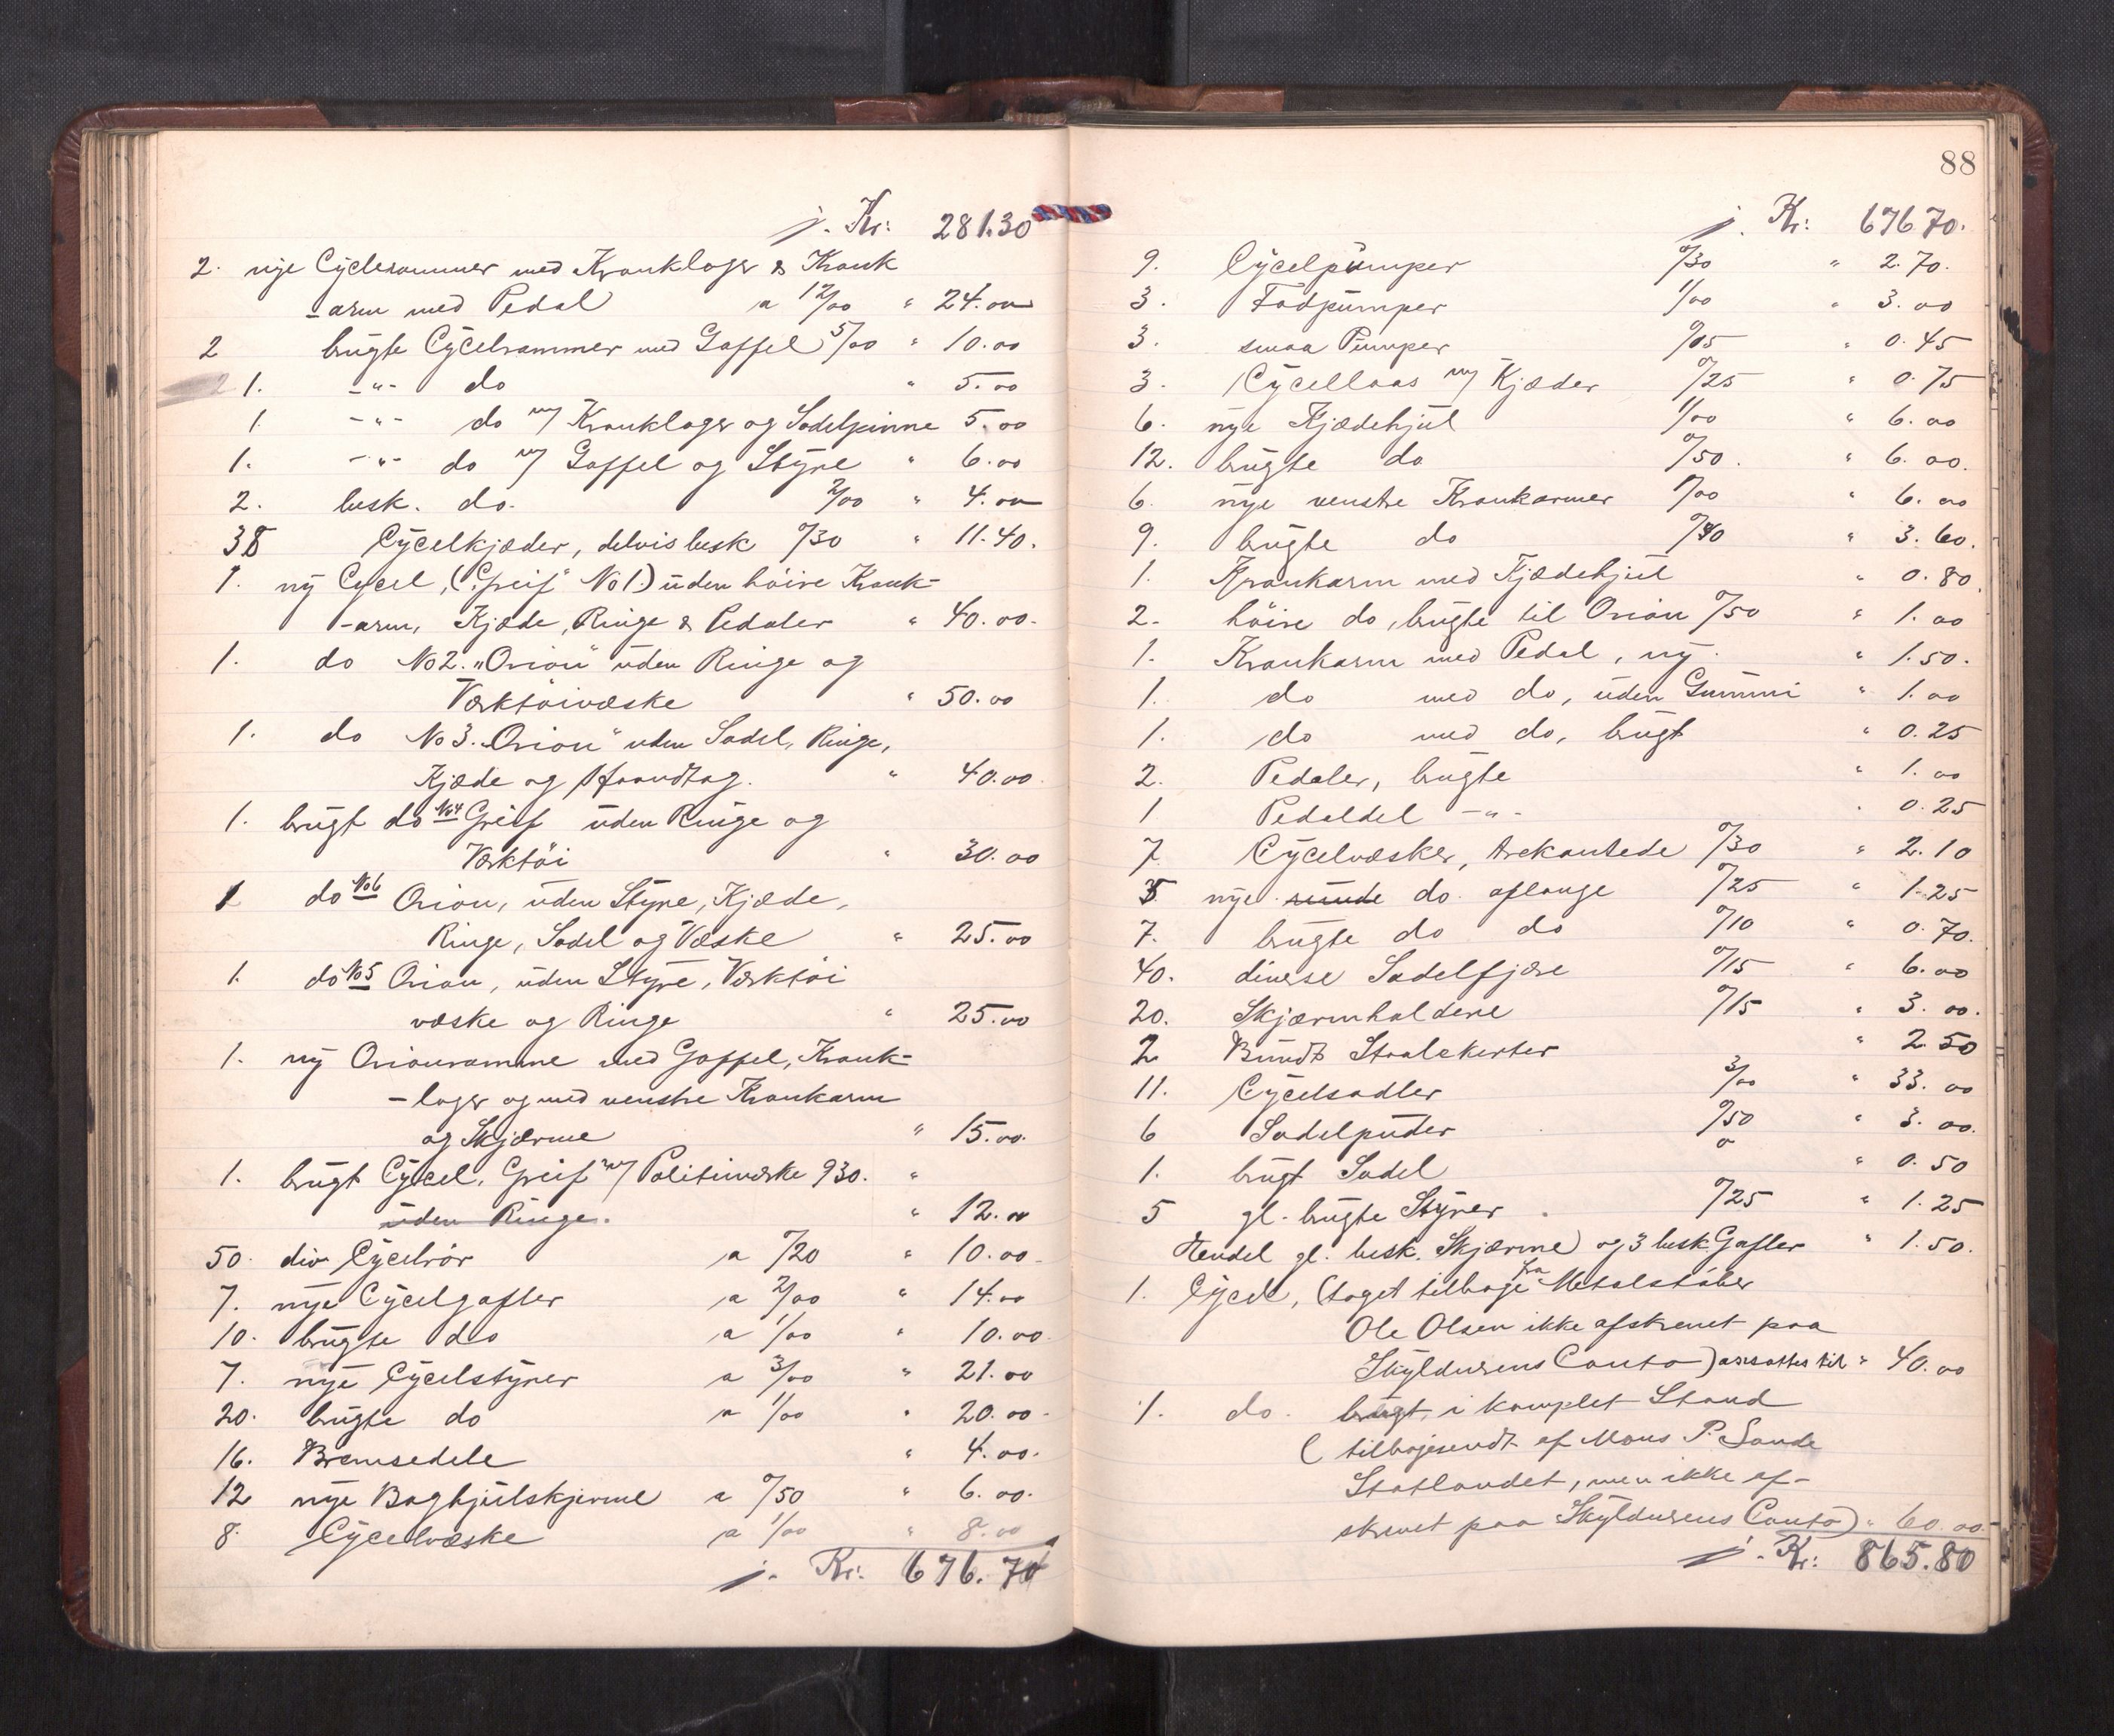 j. Kr: 281.30
2. nye Cyclerammer med Kranklager & Krank
-arm med Pedal a 12/00 " 24.00
2 brugte Cycelrammer med Gaffel 5/00 " 10.00
1. -"- do " 5.00
1. -"- do m/ Kranklager og Sadelpinne 5.00
1. -"- do m/ Gaffel og Styre " 6.00
2. besk. do. 2/00 " 4.00
38 Cycelkjæder, delvis besk 0/30 " 11.40.
1. ny Cycel, ("Greif" No 1.) uden höire Krank-
-arm, Kjæde, Ringe & Pedaler " 40.00.
1. do No 2. "Orion" uden Ringe og
Værktöivæske " 50.00
1. do No 3. "Orion" uden Sadel, Ringe,
Kjæde og 1 Haandtag. " 40.00.
1. brugt do No 4 Greif uden Ringe og
Værktöi " 30.00
1 do No 6 Orion, uden Styre, Kjæde,
Ringe, Sadel og Væske " 25.00
1. do No 5 Orion, uden Styre, Værktöi
væske og Ringe " 25.00
1. ny Orionramme med Gaffel, Krank-
-lager og med venstre Krankarm
og Skjærme " 15.00.
1. brugt Cycel, Greif m/ Politimærke 930. "
uden Ringe. " 12.00
50. div Cycelrör a 0/20 " 10.00.
7. nye Cycelgafler a 2/00 " 14.00
10. brugte do a 1/00 " 10.00.
7. nye Cycelstyrer a 3/00 " 21.00
20. brugte do a 1/00 " 20.00.
16. Bremsedele " 4.00.
12 nye Baghjulskjerme a 0/50 " 6.00.
8. Cycelvæske a 1/00 " 8.00
j. Kr: 676.70
88
j. Kr: 676.70.
9. Cycelpumper 0/30 " 2.70.
3. Fodpumper 1/00 " 3.00
3. smaa Pumper 0/15 " 0.45
3. Cycellaas m/ Kjæder 0/25 " 0.75
6. nye Kjædehjul 1/00 " 6.00
12. brugte do 0/50. " 6.00.
6. nye venstre Krankarmer 1/00 " 6.00
9. brugte do 0/40 " 3.60.
1. Krankarm med Kjædehjul " 0.80.
2. höire do, brugte til Orion 0/50 " 1.00
1. Krankarm med Pedal, ny. " 1.50.
1. do med do, uden Gummi " 1.00
1. do med do, brugt " 0.25
2. Pedaler, brugte " 1.00
1 Pedaldel -"- " 0.25
7. Cycelvæsker, trekantede 0/30 " 2.10
5 nye runde do. aflange 0/25 " 1.25
7. brugte do do 0/10 " 0.70.
40. diverse Sadelfjære 0/15 " 6.00
20. Skjærmholdere 0/15 " 3.00.
2 Bundt Staalekerter " 2.50
11. Cycelsadler 3/00 " 33.00
6 Sadelpuder 0/50 " 3.00.
1. brugt Sadel " 0.50
5 gl. brugte Styrer. 0/25 " 1.25
Hendel gl. besk. Skjærme og 3 besk. Gafler " 1.50.
1. Cycel, (taget tilbage fra Metalstöber
Ole Olsen ikke afskrevet paa
Skyldnerens Conto) ansattes til " 40.00
1. do. brugt, i komplet Stand
( tilbagesendt af Mons P. Sande
Statlandet, men ikke af-
skrevet paa Skyldnerens Conto) " 60.00.
j. Kr: 865.80